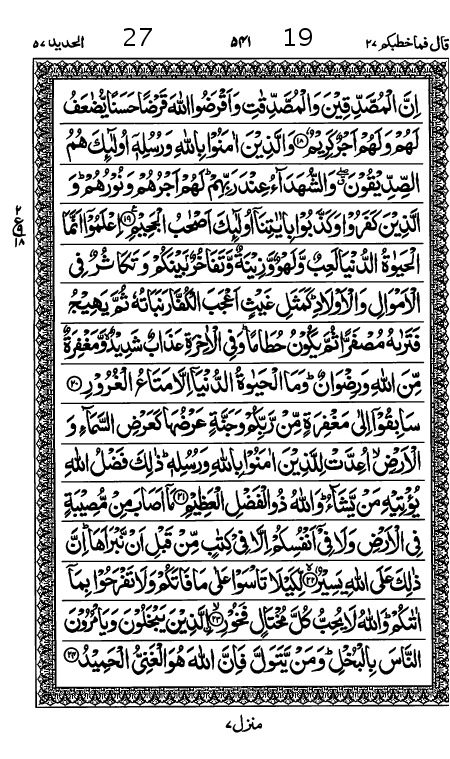 قال فماخطبکم ۲۷ 19 ۵۴۱ 27 الحدید ۵۷
اِنَّ الْمُصَّدِّقِیْنَ وَالْمُصَّدِّقٰتِ وَاَقْرَضُوا اللّٰهَ قَرْضًا حَسَنًا یُّضٰعَفُ
لَهُمْ وَلَهُمْ اَجْرٌ كَرِیْمٌ ۝۱۸ وَالَّذِیْنَ اٰمَنُوْا بِاللّٰهِ وَرُسُلِهٖۤ اُولٰٓىِٕكَ هُمُ
الصِّدِّیْقُوْنَ ۖۗ وَالشُّهَدَآءُ عِنْدَ رَبِّهِمْ ؕ لَهُمْ اَجْرُهُمْ وَنُوْرُهُمْ ؕ وَ
الَّذِیْنَ كَفَرُوْا وَكَذَّبُوْا بِاٰیٰتِنَاۤ اُولٰٓىِٕكَ اَصْحٰبُ الْجَحِیْمِ ۝۱۹ اِعْلَمُوْۤا اَنَّمَا
الْحَیٰوةُ الدُّنْیَا لَعِبٌ وَّلَهْوٌ وَّزِیْنَةٌ وَّتَفَاخُرٌۢ بَیْنَكُمْ وَتَكَاثُرٌ فِی
الْاَمْوَالِ وَالْاَوْلَادِ ؕ كَمَثَلِ غَیْثٍ اَعْجَبَ الْكُفَّارَ نَبَاتُهٗ ثُمَّ یَهِیْجُ
فَتَرٰىهُ مُصْفَرًّا ثُمَّ یَكُوْنُ حُطَامًا ؕ وَفِی الْاٰخِرَةِ عَذَابٌ شَدِیْدٌ ۙ وَّمَغْفِرَةٌ
مِّنَ اللّٰهِ وَرِضْوَانٌ ؕ وَمَا الْحَیٰوةُ الدُّنْیَاۤ اِلَّا مَتَاعُ الْغُرُوْرِ ۝۲۰
سَابِقُوْۤا اِلٰى مَغْفِرَةٍ مِّنْ رَّبِّكُمْ وَجَنَّةٍ عَرْضُهَا كَعَرْضِ السَّمَآءِ وَ
الْاَرْضِ ۙ اُعِدَّتْ لِلَّذِیْنَ اٰمَنُوْا بِاللّٰهِ وَرُسُلِهٖ ؕ ذٰلِكَ فَضْلُ اللّٰهِ
یُؤْتِیْهِ مَنْ یَّشَآءُ ؕ وَاللّٰهُ ذُو الْفَضْلِ الْعَظِیْمِ ۝۲۱ مَاۤ اَصَابَ مِنْ مُّصِیْبَةٍ
فِی الْاَرْضِ وَلَا فِیْۤ اَنْفُسِكُمْ اِلَّا فِیْ كِتٰبٍ مِّنْ قَبْلِ اَنْ نَّبْرَاَهَا ؕ اِنَّ
ذٰلِكَ عَلَى اللّٰهِ یَسِیْرٌ ۝۲۲ لِّكَیْلَا تَاْسَوْا عَلٰى مَا فَاتَكُمْ وَلَا تَفْرَحُوْا بِمَاۤ
اٰتٰىكُمْ ؕ وَاللّٰهُ لَا یُحِبُّ كُلَّ مُخْتَالٍ فَخُوْرٍ ۝۲۳ اِلَّذِیْنَ یَبْخَلُوْنَ وَیَاْمُرُوْنَ
النَّاسَ بِالْبُخْلِ ؕ وَمَنْ یَّتَوَلَّ فَاِنَّ اللّٰهَ هُوَ الْغَنِیُّ الْحَمِیْدُ ۝۲۴
۲
ع
۱۸
منزل ۷